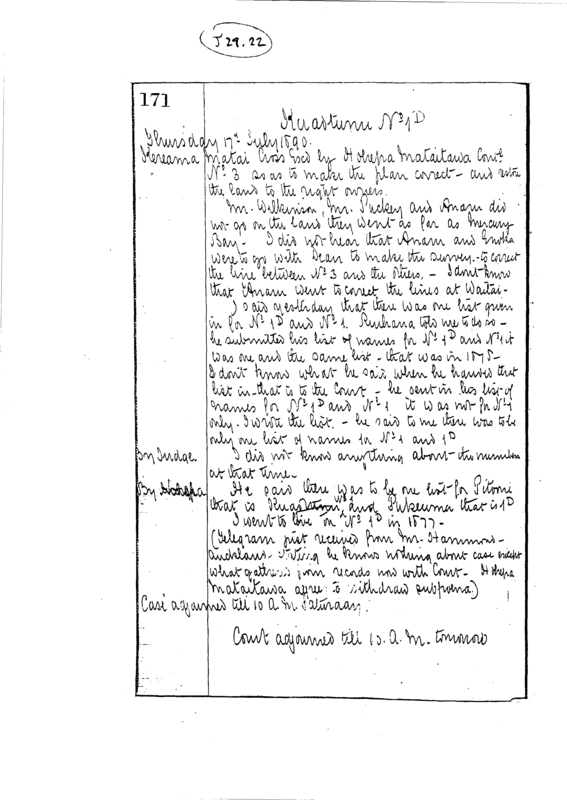 J 29.22
171
Kuaotunu No 1D
Thursday 17th July 1890.
Kereama Matai Cross Exd by Hohepa Mataitawa Contd
No 3 so as to make the plan correct - and
the land to the right owners.
Mr. Wilkinson, Mr. Puckey and Anam did
not go on the land they went as far as Mercury
Bay - I did not hear that Anam and
were to go with Dean to make the survey - to correct
the line between No 3 and the others. - I dont know
that Anam went to correct the lines at Waitai -
I said yesterday that there was one list given
in for No 1D and No 1. Ruihana told me to do so -
he submitted his list of names for No 1D and No 1 it
was one and the same list - that was in 1878 -
I dont know what he said when he handed that
list in - that is to the Court - he sent in his list of
names for No 1D and No 1 it was not for No 1
only - I wrote the list. - he said to me there was to be
only one list of names for No 1 and 1D
By Judge I did not know anything about the numbers
at that time -
By Hohepa He said there was to be one list for Pitoone
that is and Pukewhau that is 1D
I went to live on No 1D in 1877 -
(Telegram just received from Mr. Hammond -
Auckland - he knows nothing about case except
what gathered from records now with Court - Hohepa
Mataitawa agree to withdraw subpoena.)
Case adjourned till 10 A.M. Saturday.
Court adjourned till 10. A. M. tomorrow